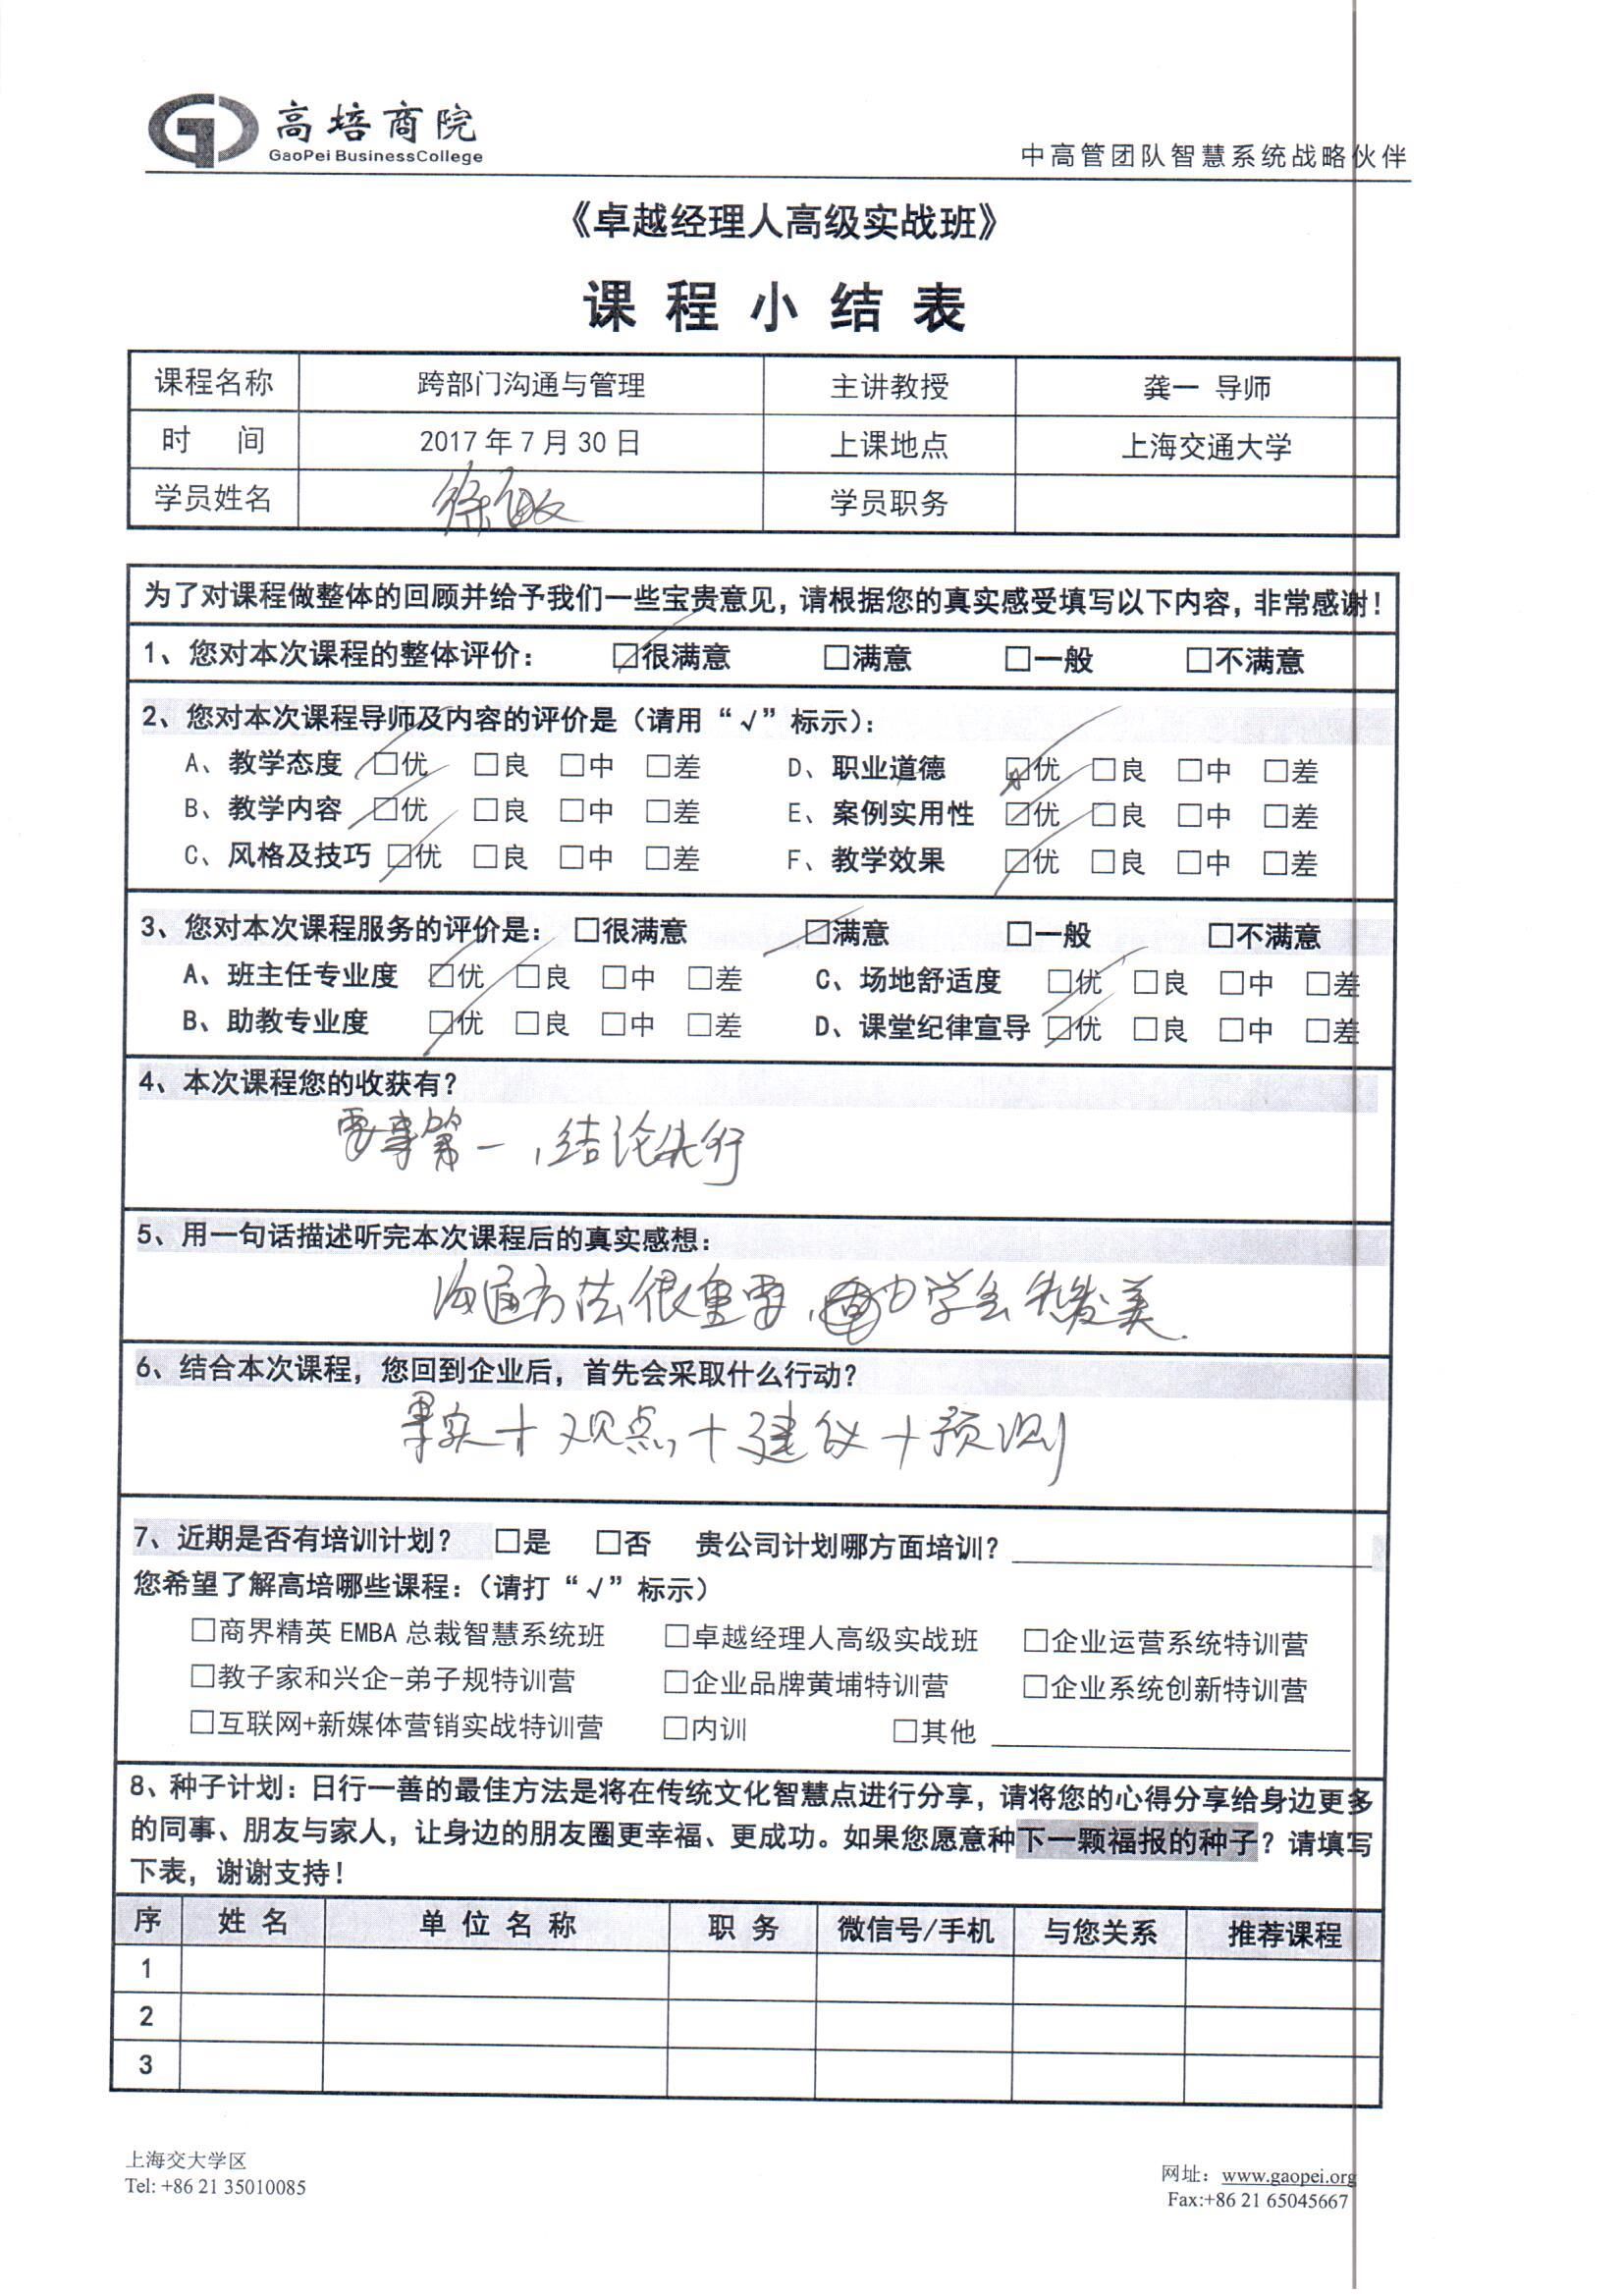 高培商院
GaoPei BusinessCollege
中高管团队智慧系统战略伙伴
《卓越经理人高级实战班》
课程小结表
课程名称 跨部门沟通与管理 主讲教授 龚一 导师
时 间 2017年7月30日 上课地点 上海交通大学
学员姓名 徐敏 学员职务
为了对课程做整体的回顾并给予我们一些宝贵意见，请根据您的真实感受填写以下内容，非常感谢！
1、您对本次课程的整体评价： ☑很满意 □满意 □一般 □不满意
2、您对本次课程导师及内容的评价是（请用“√”标示）：
A、教学态度 ☑优 □良 □中 □差 D、职业道德 ☑优 □良 □中 □差
B、教学内容 ☑优 □良 □中 □差 E、案例实用性 ☑优 □良 □中 □差
C、风格及技巧 ☑优 □良 □中 □差 F、教学效果 ☑优 □良 □中 □差
3、您对本次课程服务的评价是： □很满意 ☑满意 □一般 □不满意
A、班主任专业度 ☑优 □良 □中 □差 C、场地舒适度 ☑优 □良 □中 □差
B、助教专业度 ☑优 □良 □中 □差 D、课堂纪律宣导 ☑优 □良 □中 □差
4、本次课程您的收获有？
要事第一，结论先行
5、用一句话描述听完本次课程后的真实感想：
沟通方法很重要，学会先发美.
6、结合本次课程，您回到企业后，首先会采取什么行动？
事实+观点+建议+预测
7、近期是否有培训计划？ □是 □否 贵公司计划哪方面培训？
您希望了解高培哪些课程：（请打“√”标示）
□商界精英EMBA总裁智慧系统班 □卓越经理人高级实战班 □企业运营系统特训营
□教子家和兴企-弟子规特训营 □企业品牌黄埔特训营 □企业系统创新特训营
□互联网+新媒体营销实战特训营 □内训 □其他
8、种子计划：日行一善的最佳方法是将在传统文化智慧点进行分享，请将您的心得分享给身边更多
的同事、朋友与家人，让身边的朋友圈更幸福、更成功。如果您愿意种下一颗福报的种子？请填写
下表，谢谢支持！
序 姓名 单位名称 职务 微信号/手机 与您关系 推荐课程
1
2
3
上海交大学区
Tel: +86 21 35010085
网址：www.gaopei.org
Fax:+86 21 65045667